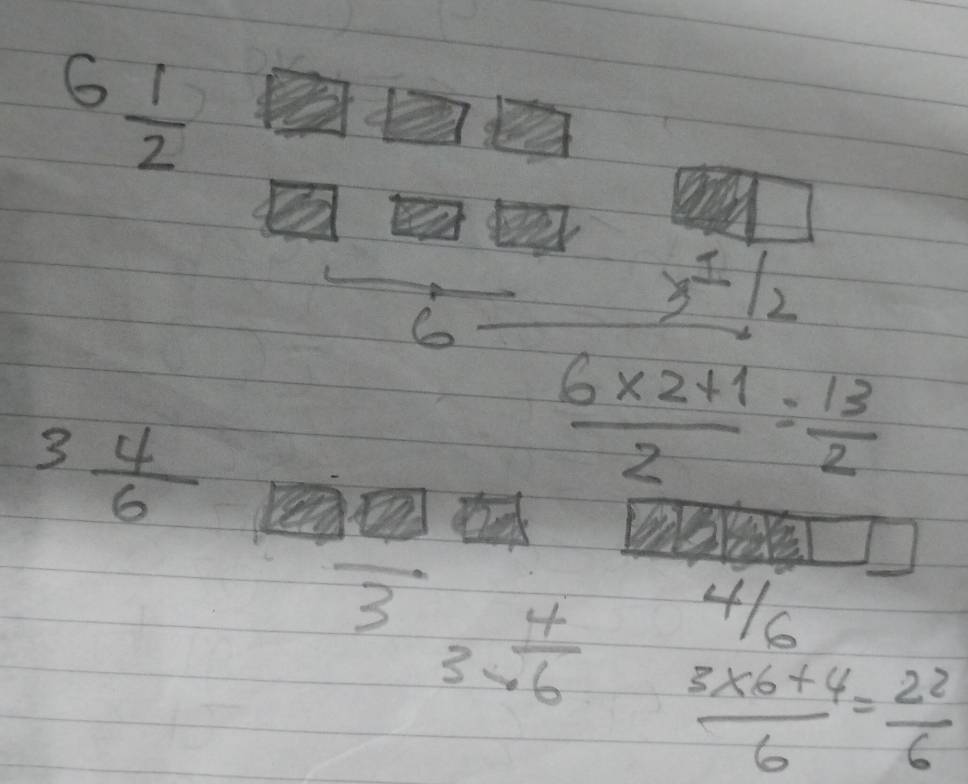 6 1/2
1/2
6
6×2+1/2 = 13/2
3 4/6
3
4/6
3 4/6
3×6+4/6 = 22/6